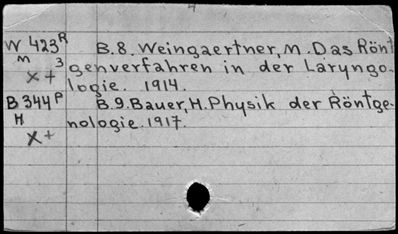 W 423R B.8. Weingaertner, M. Das Rönt
M 3 genverfahren in der Laryngo-
x + logie. 1914.
B 344P B.9. Bauer, H. Physik der Röntge-
H nologie. 1917.
x +